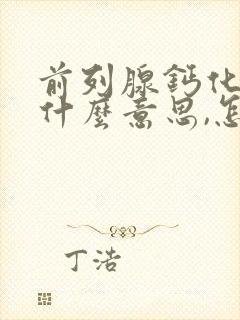 前列腺鈣化
什麼意思,怎
丁浩